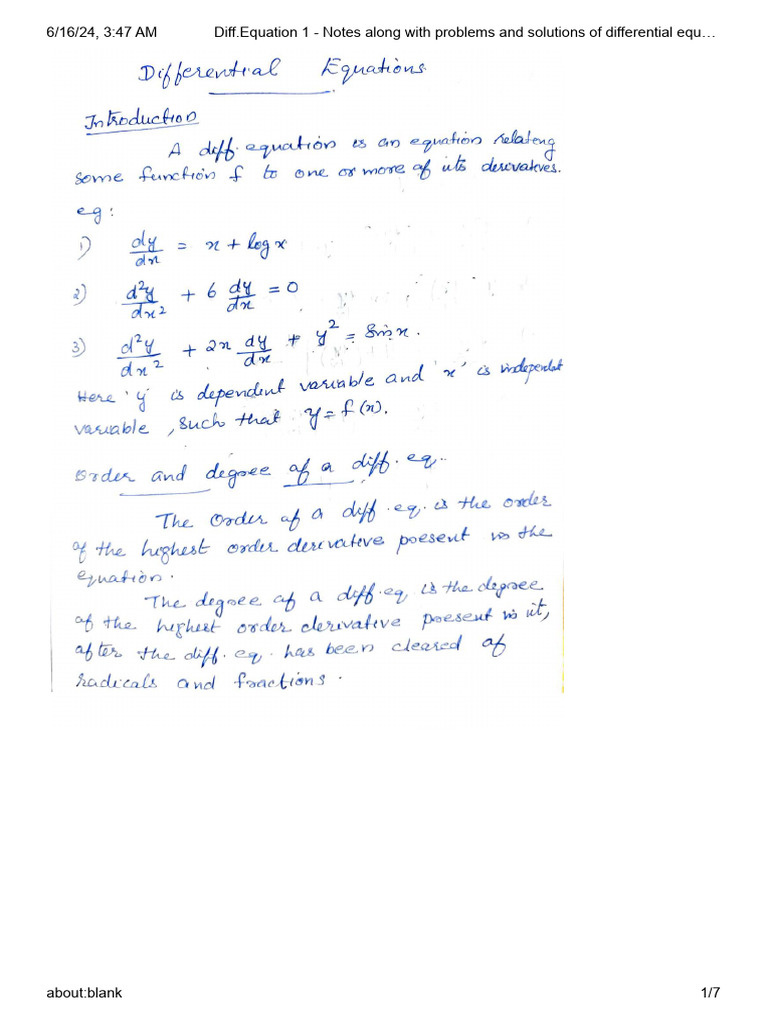 6/16/24, 3:47 AM Diff.Equation 1 - Notes along with problems and solutions of differential equ…
Differential Equations.
Introduction
A diff. equation is an equation relating
some function f to one or more of its derivatives.
eg:
1) dy/dx = x + log x
2) d²y/dx² + 6 dy/dx = 0
3) d²y/dx² + 2x dy/dx + y² = Sin x.
Here 'y' is dependent variable and 'x' is independent
variable, such that y = f(x).
Order and degree of a diff. eq.
The order of a diff. eq. is the order
of the highest order derivative present in the
equation.
The degree of a diff. eq is the degree
of the highest order derivative present in it,
after the diff. eq. has been cleared of
radicals and fractions.
about:blank 1/7